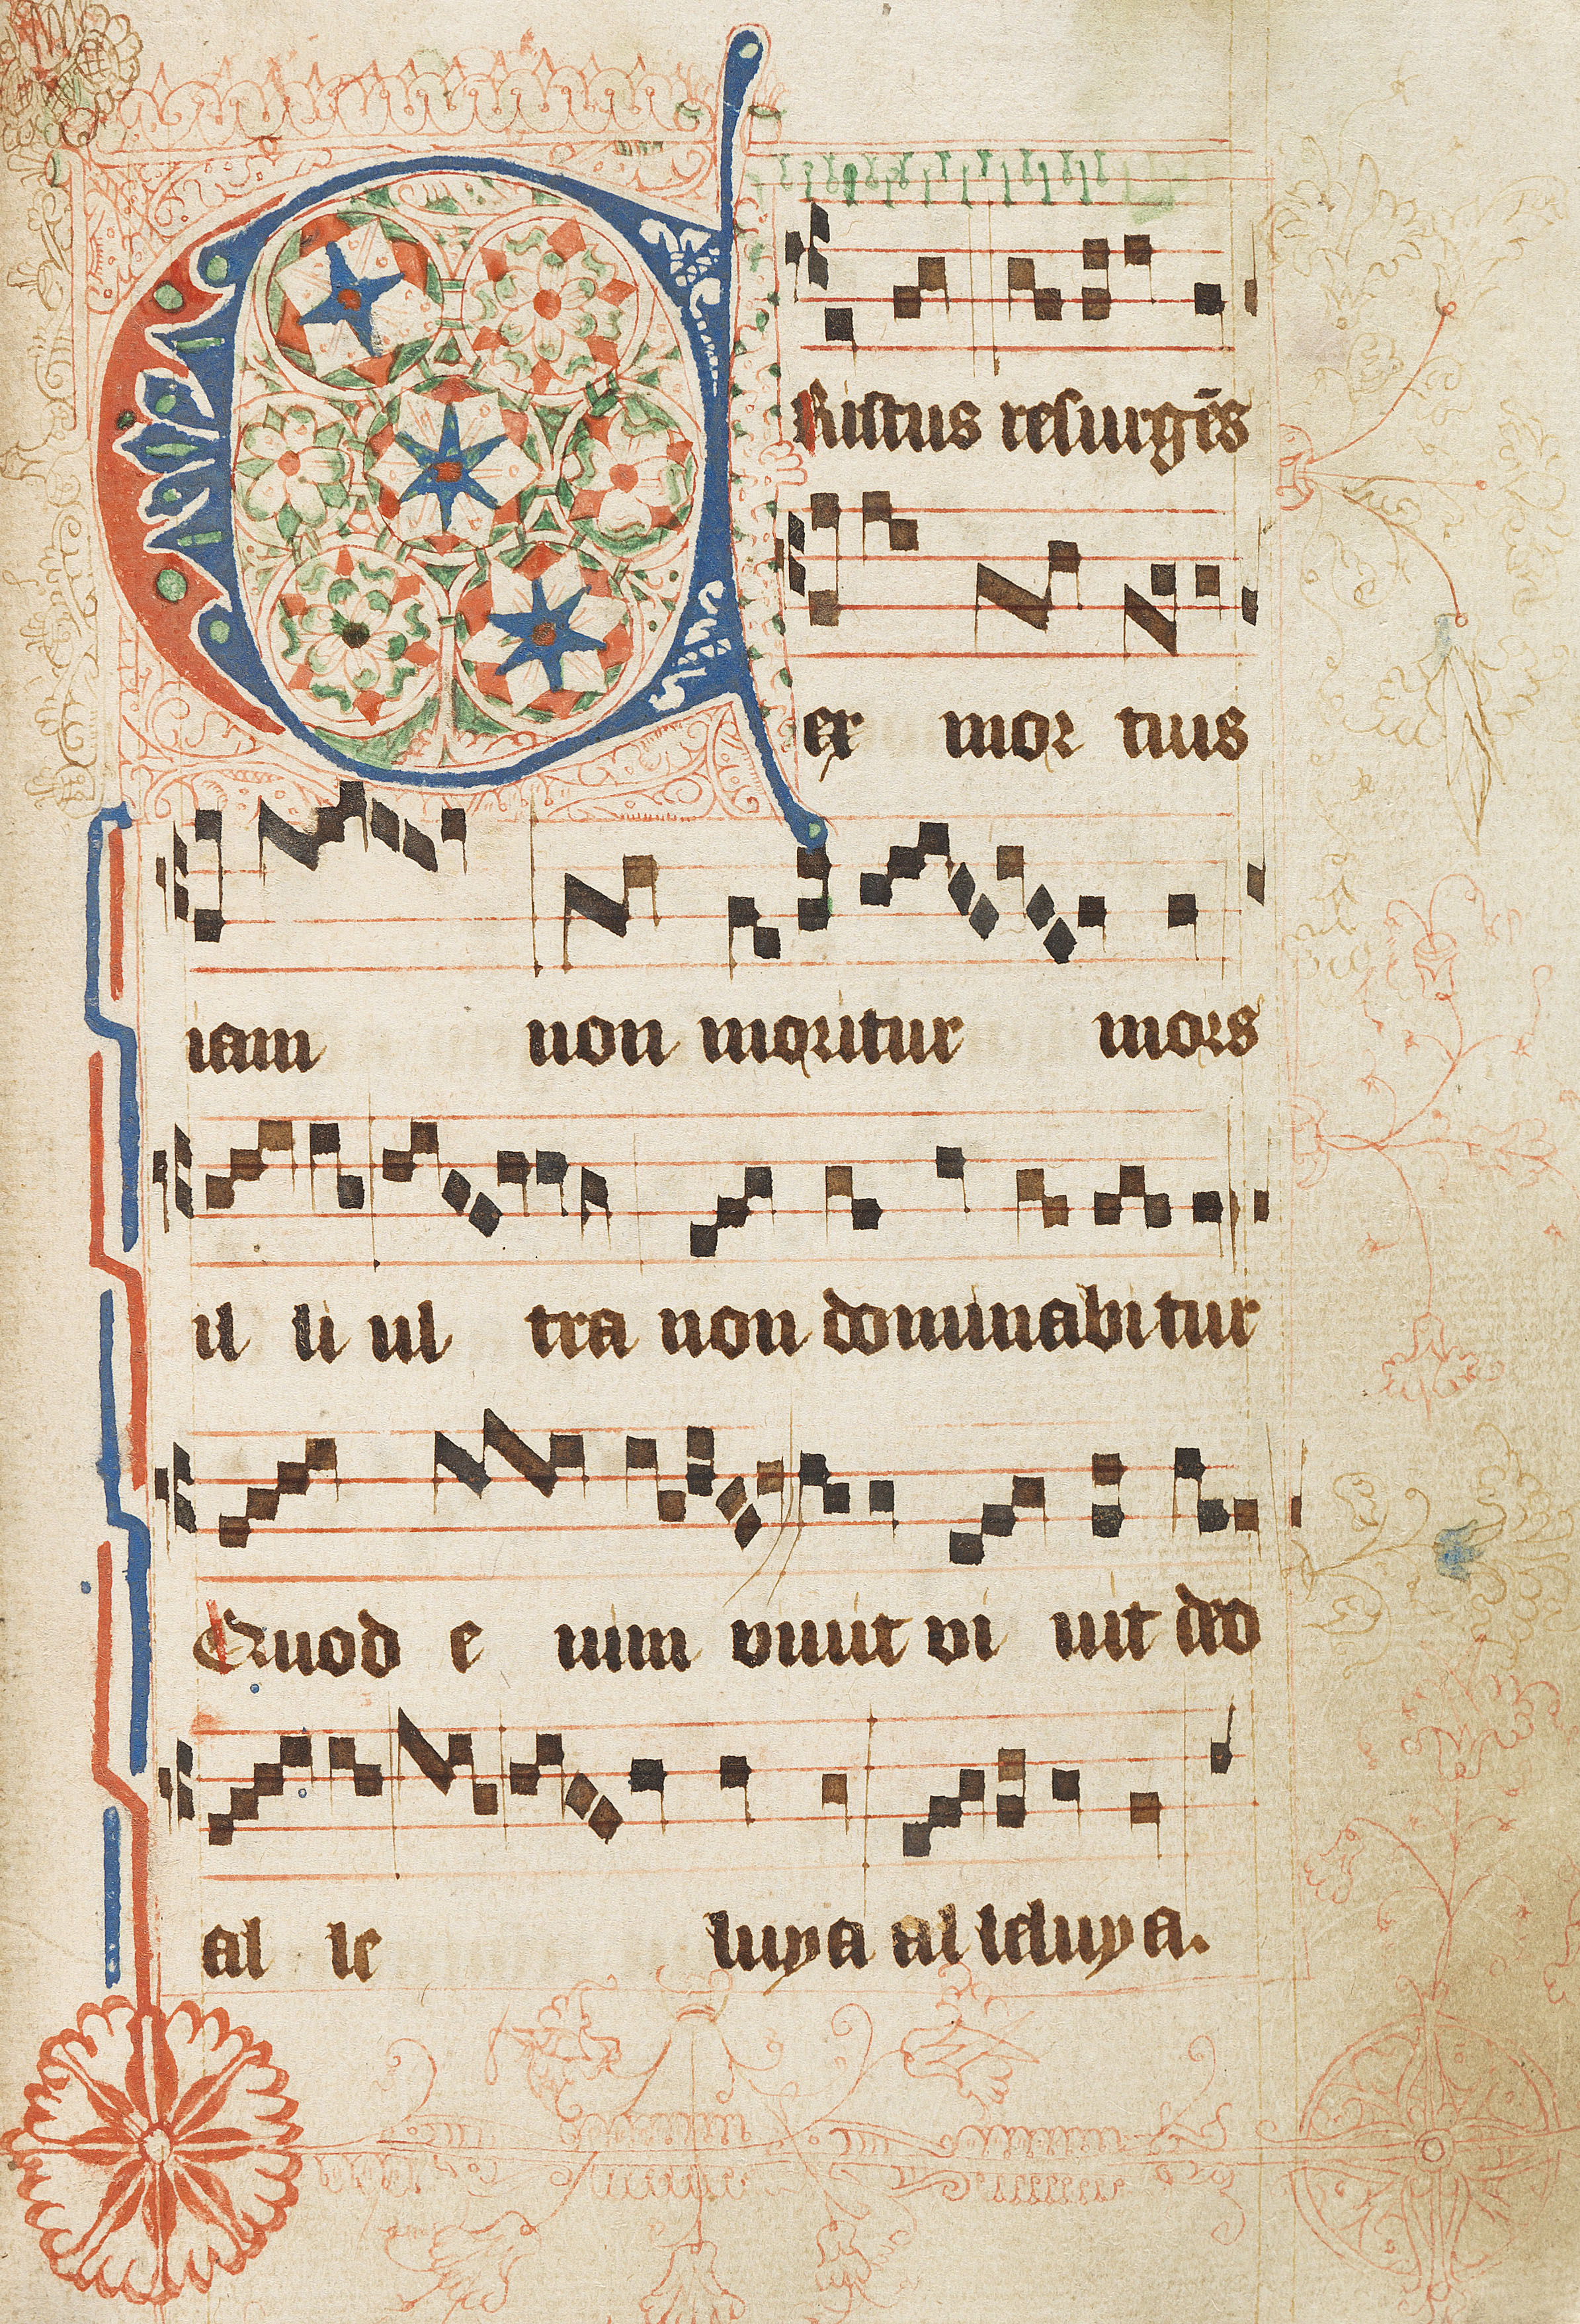 CRistus resurgēs
ex mor tuis
iam non moritur mors
il li ul tra non dominabitur
Quod e nim viuit vi uit deo
al le luya al leluya.